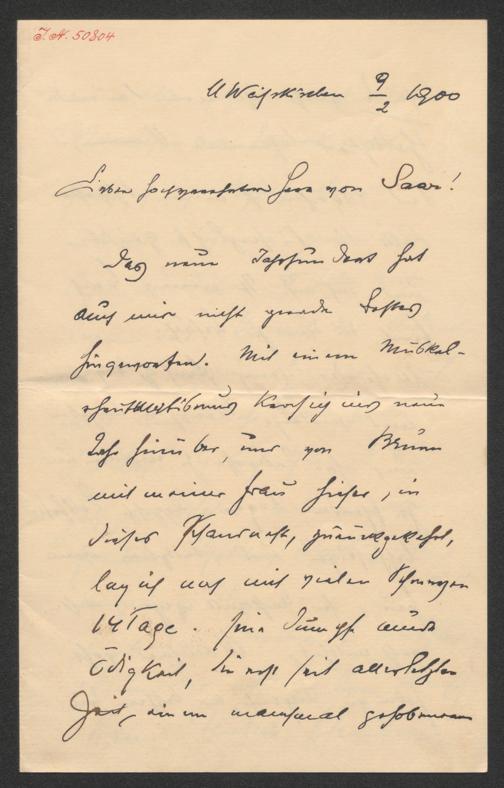 I.N. 50804
M Weißkirchen 9/2 1900
Lieber hochverehrter Herr von Saar!
Das neue Jahrhundert hat
auch mir nicht gerade Bestes
hingeworfen. Mit einem Muskel-
rheumatismus kroch ich ins neue
Jahr hinüber, und von Brünn
mit meiner Frau hieher, in
dieses zurückgekehrt,
lag ich noch mit vielen Schmerzen
14 Tage. Eine dumpfe müde
Ödigkeit, die erst seit allerletzter
Zeit, einem manchmal gehobeneren